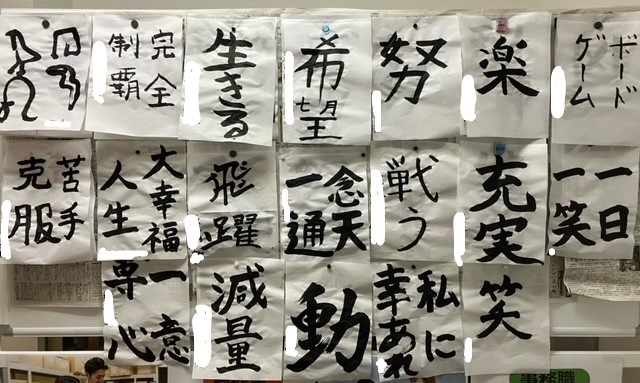 完全
制覇
生きる
希望
努
楽
ボード
ゲーム
苦手
克服
大幸福
人生
飛躍
一念天
通
戦う
充実
一日
一笑
一意
専心
減量
動
私に
幸あれ
笑
事務職